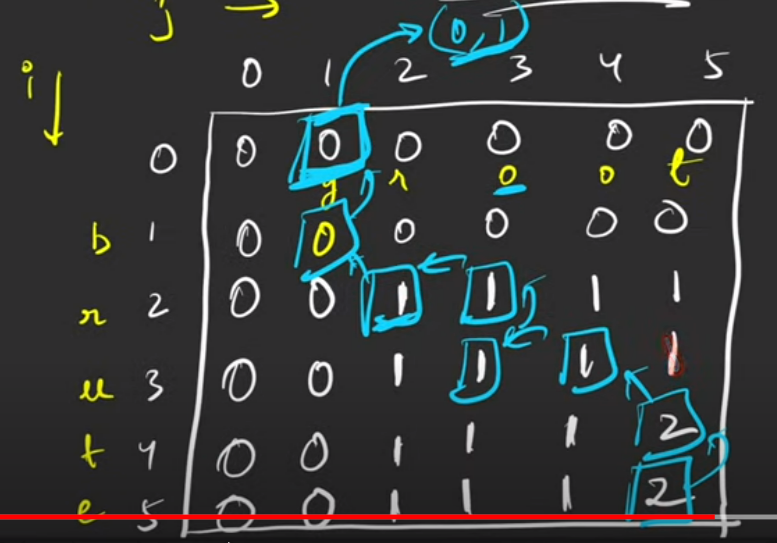 j →
(0,1)
i ↓
0 1 2 3 4 5
0 0 0 0 0 0 0
g r o o t
b 1 0 0 0 0 0 0
r 2 0 0 1 1 1 1
u 3 0 0 1 1 1 1
t 4 0 0 1 1 1 2
e 5 0 0 1 1 1 2